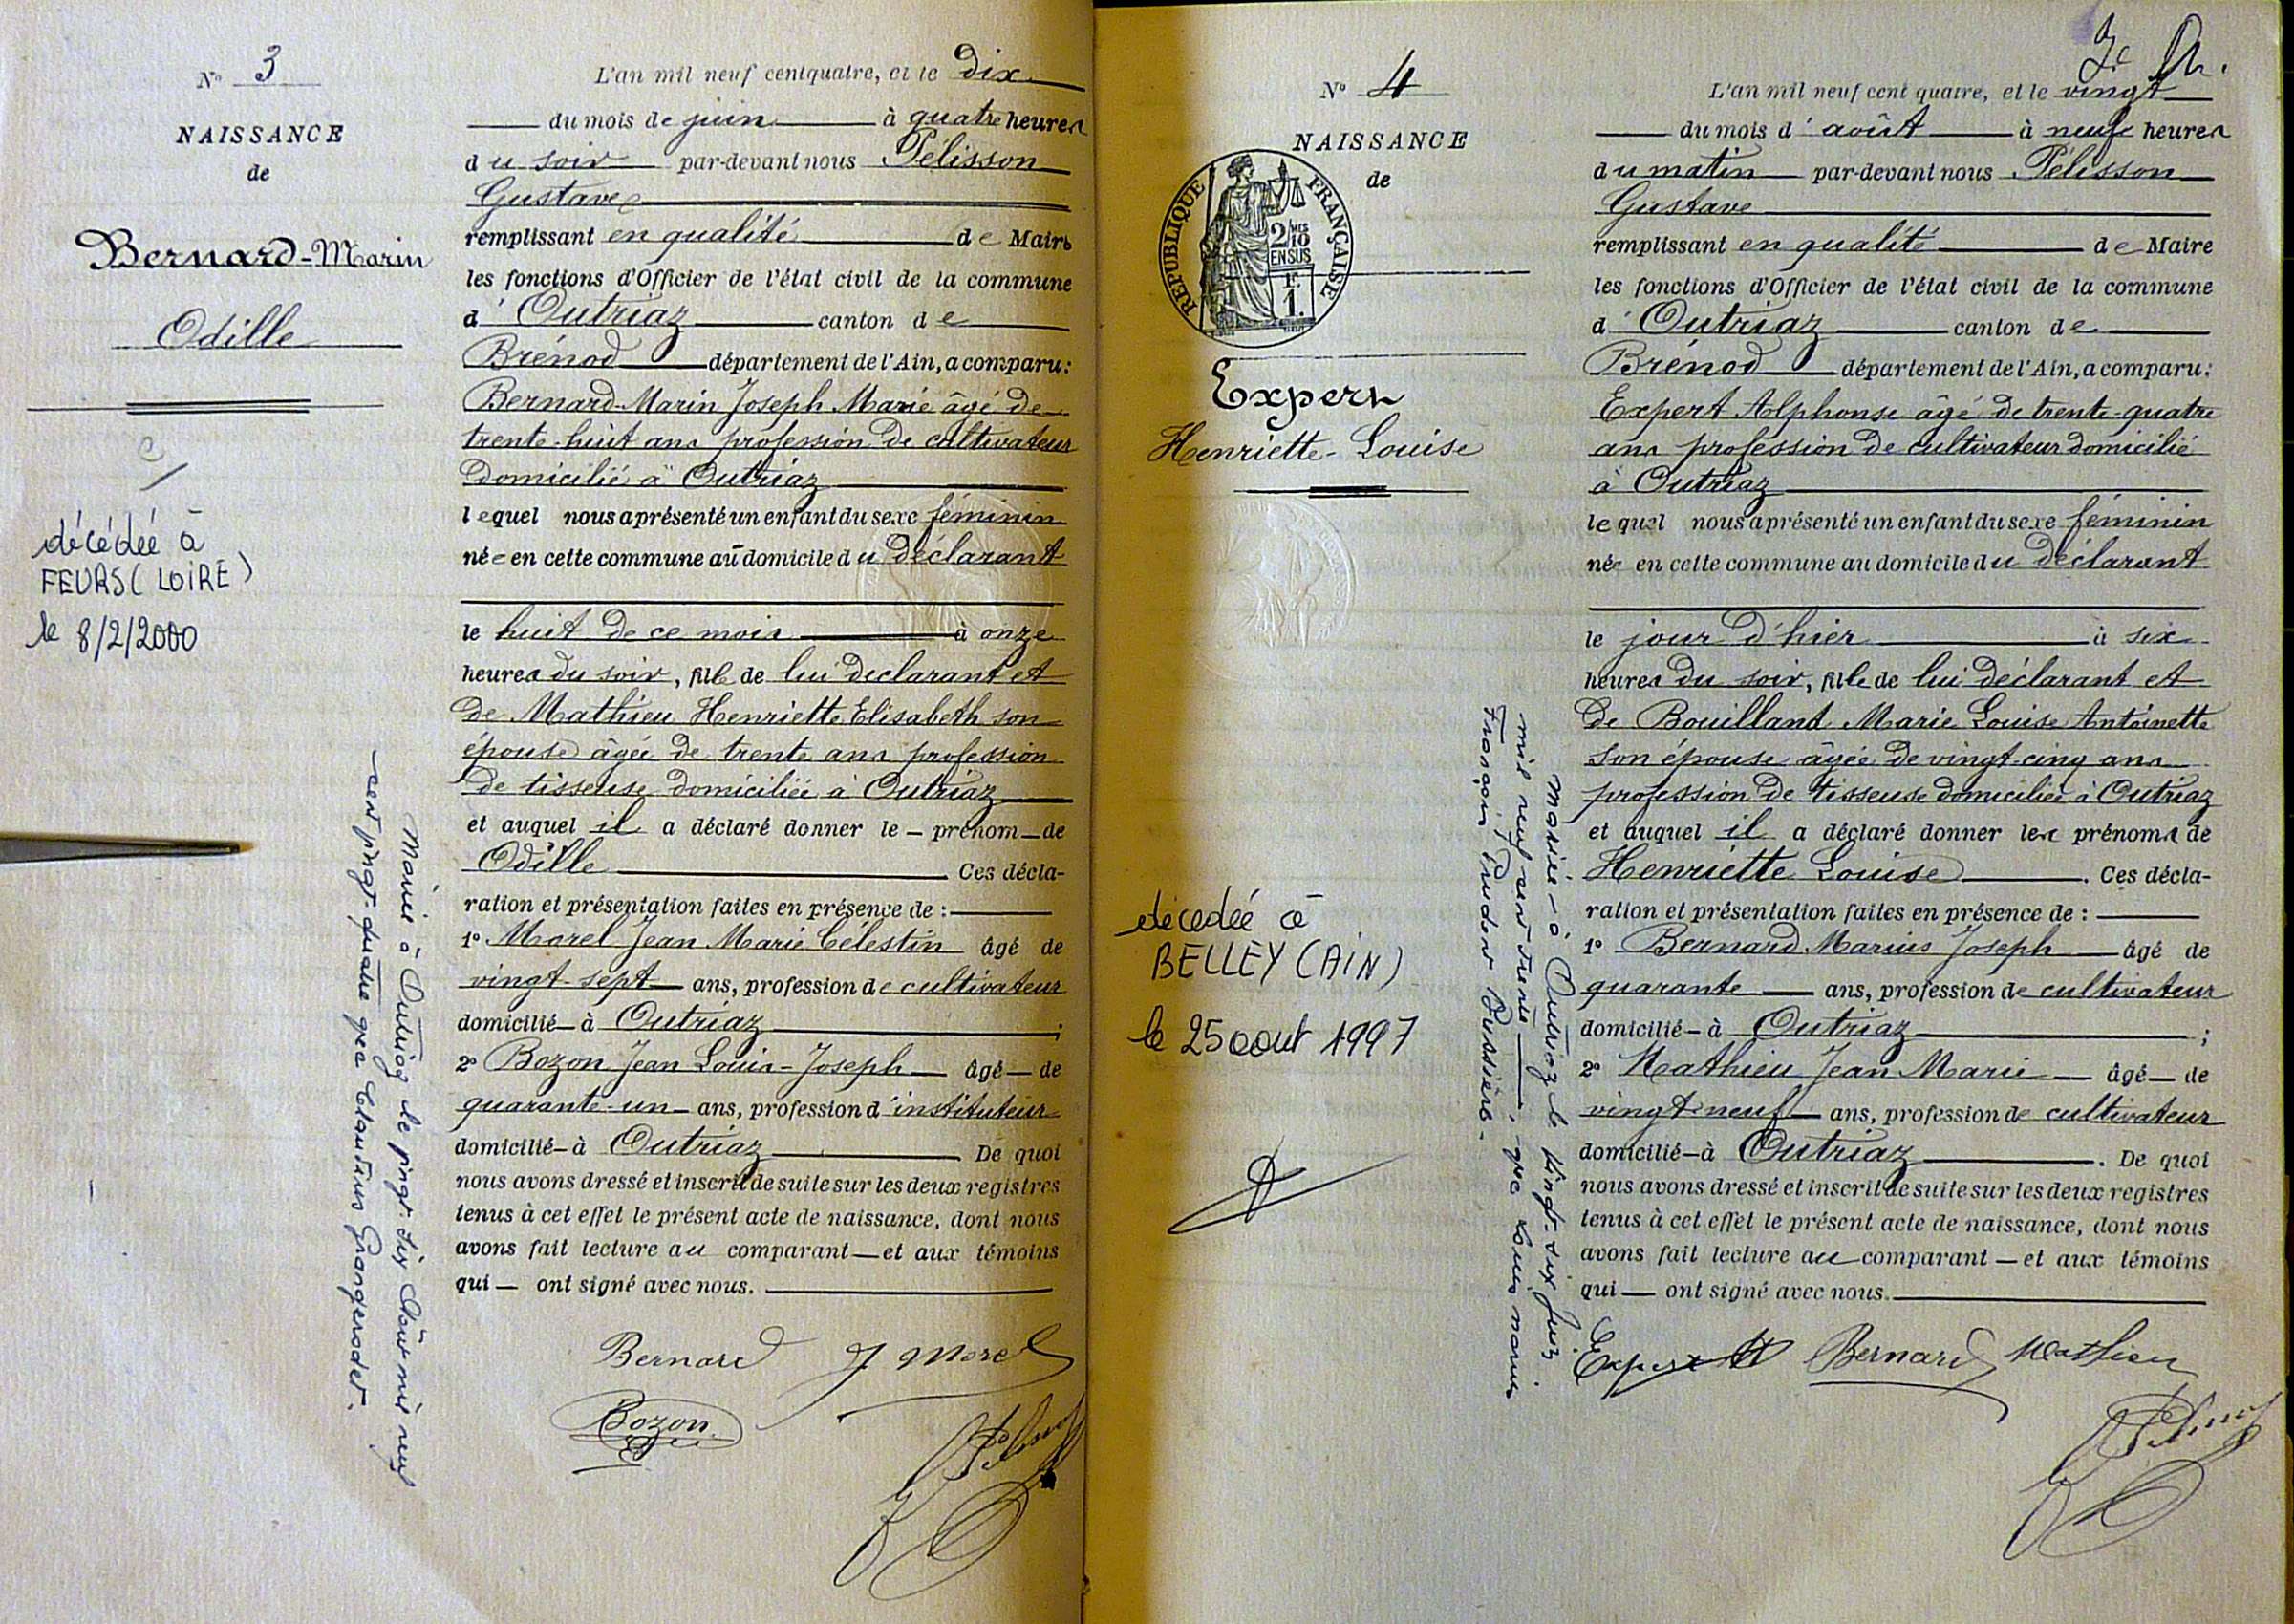 N° 3
NAISSANCE
de
Bernard-Marin
Odille
décédée à
FEURS (LOIRE)
le 8/2/2000
Mariée à Outriaz le vingt-six Août mil neuf
cent vingt-quatre avec Claudius Grangerodet.
L'an mil neuf cent quatre, et le dix
du mois de juin à quatre heures
du soir par-devant nous Pélisson
Gustave
remplissant en qualité de Maire
les fonctions d'Officier de l'état civil de la commune
d'Outriaz canton de
Brénod département de l'Ain, a comparu:
Bernard-Marin Joseph Marie âgé de
trente-huit ans profession de cultivateur
domicilié à Outriaz
lequel nous a présenté un enfant du sexe féminin
née en cette commune au domicile du déclarant
le huit de ce mois à onze
heures du soir, fille de lui déclarant et
de Mathieu Henriette Elisabeth son
épouse âgée de trente ans profession
de tisseuse domiciliée à Outriaz
et auquel il a déclaré donner le – prénom – de
Odille. Ces décla-
ration et présentation faites en présence de :
1° Morel Jean Marie Célestin âgé de
vingt-sept ans, profession de cultivateur
domicilié – à Outriaz ;
2° Bozon Jean Louis-Joseph âgé – de
quarante-un ans, profession d'instituteur
domicilié – à Outriaz. De quoi
nous avons dressé et inscrit de suite sur les deux registres
tenus à cet effet le présent acte de naissance, dont nous
avons fait lecture au comparant – et aux témoins
qui – ont signé avec nous.
Bernard J Morel
Bozon
N° 4
NAISSANCE
de
REPUBLIQUE FRANÇAISE
2/10 MES
EN SUS
1F.
1.
Expert
Henriette-Louise
décédée à
BELLEY (AIN)
le 25 aout 1997
Mariée – à Outriaz le vingt-six Juin
mil neuf cent trente , avec Louis Marie
François Prudent Bussière.
L'an mil neuf cent quatre, et le vingt
du mois d'août à neuf heures
du matin par-devant nous Pélisson
Gustave
remplissant en qualité de Maire
les fonctions d'Officier de l'état civil de la commune
d'Outriaz canton de
Brénod département de l'Ain, a comparu:
Expert Alphonse âgé de trente-quatre
ans profession de cultivateur domicilié
à Outriaz
lequel nous a présenté un enfant du sexe féminin
née en cette commune au domicile du déclarant
le jour d'hier à six
heures du soir, fille de lui déclarant et
de Bouilland Marie Louise Antoinette
son épouse âgée de vingt-cinq ans
profession de tisseuse domiciliée à Outriaz
et auquel il a déclaré donner les prénoms de
Henriette Louise. Ces décla-
ration et présentation faites en présence de :
1° Bernard Marius Joseph âgé de
quarante ans, profession de cultivateur
domicilié – à Outriaz ;
2° Mathieu Jean Marie âgé – de
vingt-neuf ans, profession de cultivateur
domicilié – à Outriaz. De quoi
nous avons dressé et inscrit de suite sur les deux registres
tenus à cet effet le présent acte de naissance, dont nous
avons fait lecture au comparant – et aux témoins
qui – ont signé avec nous.
Expert A Bernard Mathieu